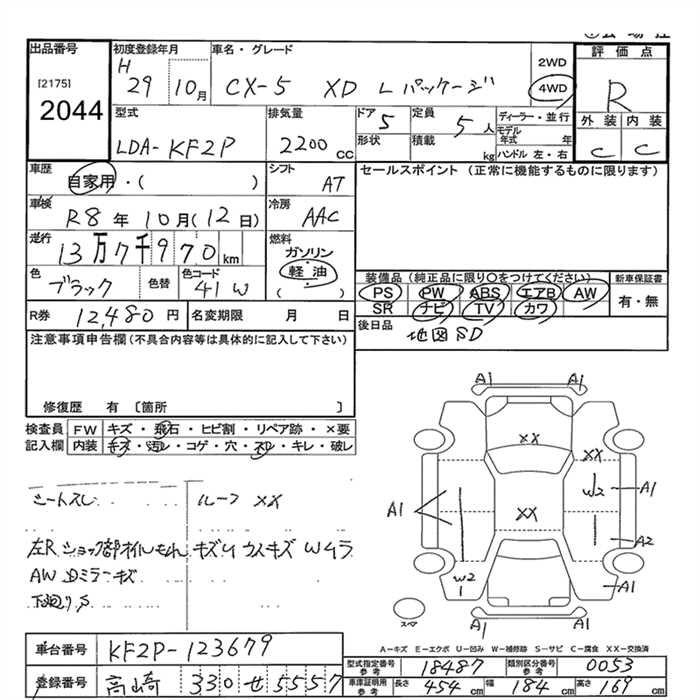 出品番号
[2175]
2044
初度登録年月
H 29 10月
車名・グレード
CX-5 XD Lパッケージ
2WD
4WD
評価点
R
外装 内装
C C
型式
LDA-KF2P
排気量
2200 CC
ドア 5
形状
定員 5人
積載 kg
ディーラー・並行
モデル年式 年
ハンドル 左・右
車歴
自家用・( )
シフト AT
セールスポイント (正常に機能するものに限ります)
車検
R8年10月(12日)
冷房 AAC
走行
13万7千970km
燃料
ガソリン
軽・油
( )
色 ブラック 色替
色コード 41W
装備品 (純正品に限り○をつけてください)
PS PW ABS エアB AW
SR ナビ TV カワ
新車保証書
有・無
R券 12,480円 名変期限 月 日
後日品 地図SD
注意事項申告欄 (不具合内容等は具体的に記入して下さい)
修復歴 有 〔箇所 〕
検査員記入欄
FW キズ・飛石・ヒビ割・リペア跡・×要
内装 キズ・汚レ・コゲ・穴・スレ・キレ・破レ
シートスレ ルーフ XX
左Rショック部オイルもれ キズU カスキズ Wムラ
AW Dミラーキズ
下廻りS
A1 A1
XX XX
W2 A1
A1 XX
A2
W2
1 A1
スペ
A1 A1
A-キズ E-エクボ U-凹み W-補修跡 S-サビ C-腐食 XX-交換済
車台番号 KF2P-123679
登録番号 高崎 330 せ 5557
型式指定番号 参考 18487 類別区分番号 参考 0053
車庫証明用 参考 長さ 454cm 幅 184cm 高さ 169